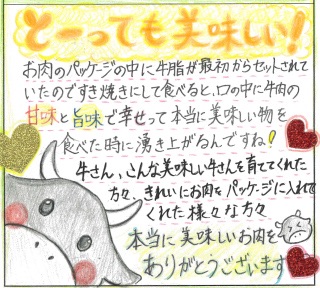 とーっても美味しい!
お肉のパッケージの中に牛脂が最初からセットされて
いたのですき焼きにして食べると、口の中に牛肉の
甘味と旨味で幸せって本当に美味しい物を
食べた時に湧き上がるんですね!
牛さん、こんな美味しい牛さんを育ててくれた
方々、きれいにお肉をパッケージに入れて
くれた様々な方々
本当に美味しいお肉を
ありがとうございます